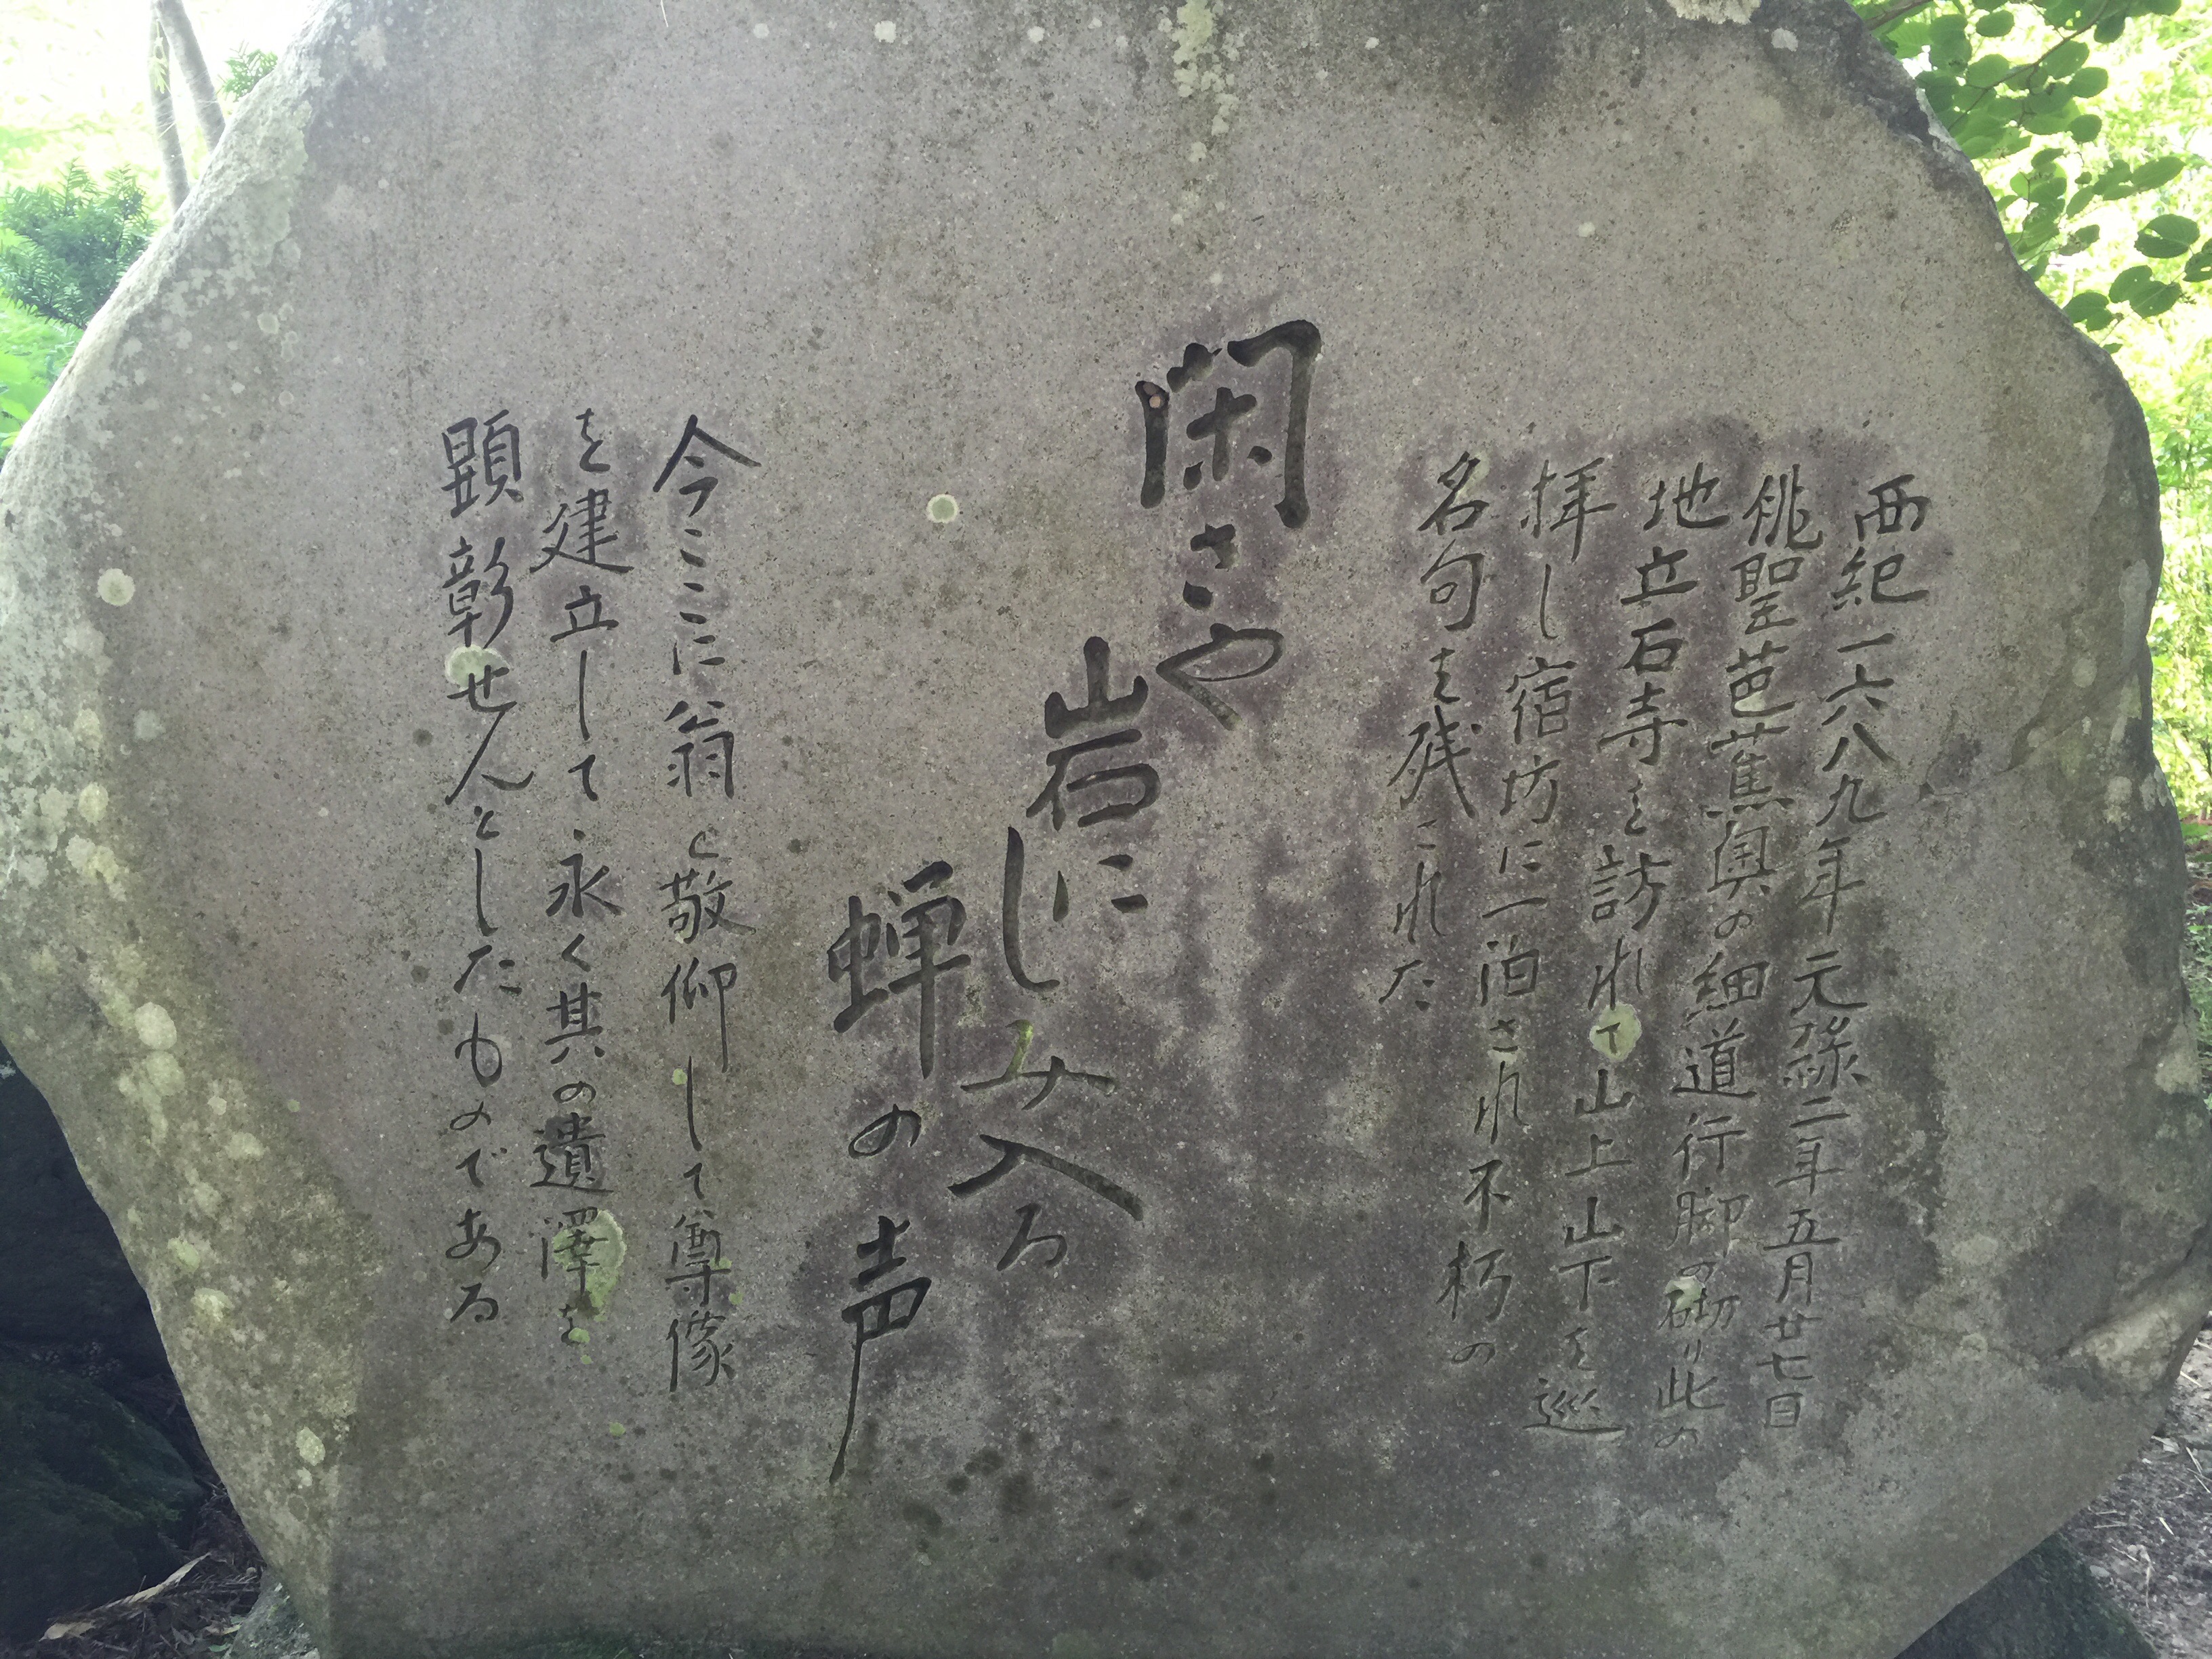 西紀一六八九年元禄二年五月廿七日
俳聖芭蕉奥の細道行脚の砌り此の
地立石寺を訪れて山上山下を巡
拝し宿坊に一泊され不朽の
名句を残された
閑さや
岩に
しみ入る
蝉の声
今ここに翁を敬仰して尊像
を建立して永く其の遺澤を
顕彰せんとしたものである